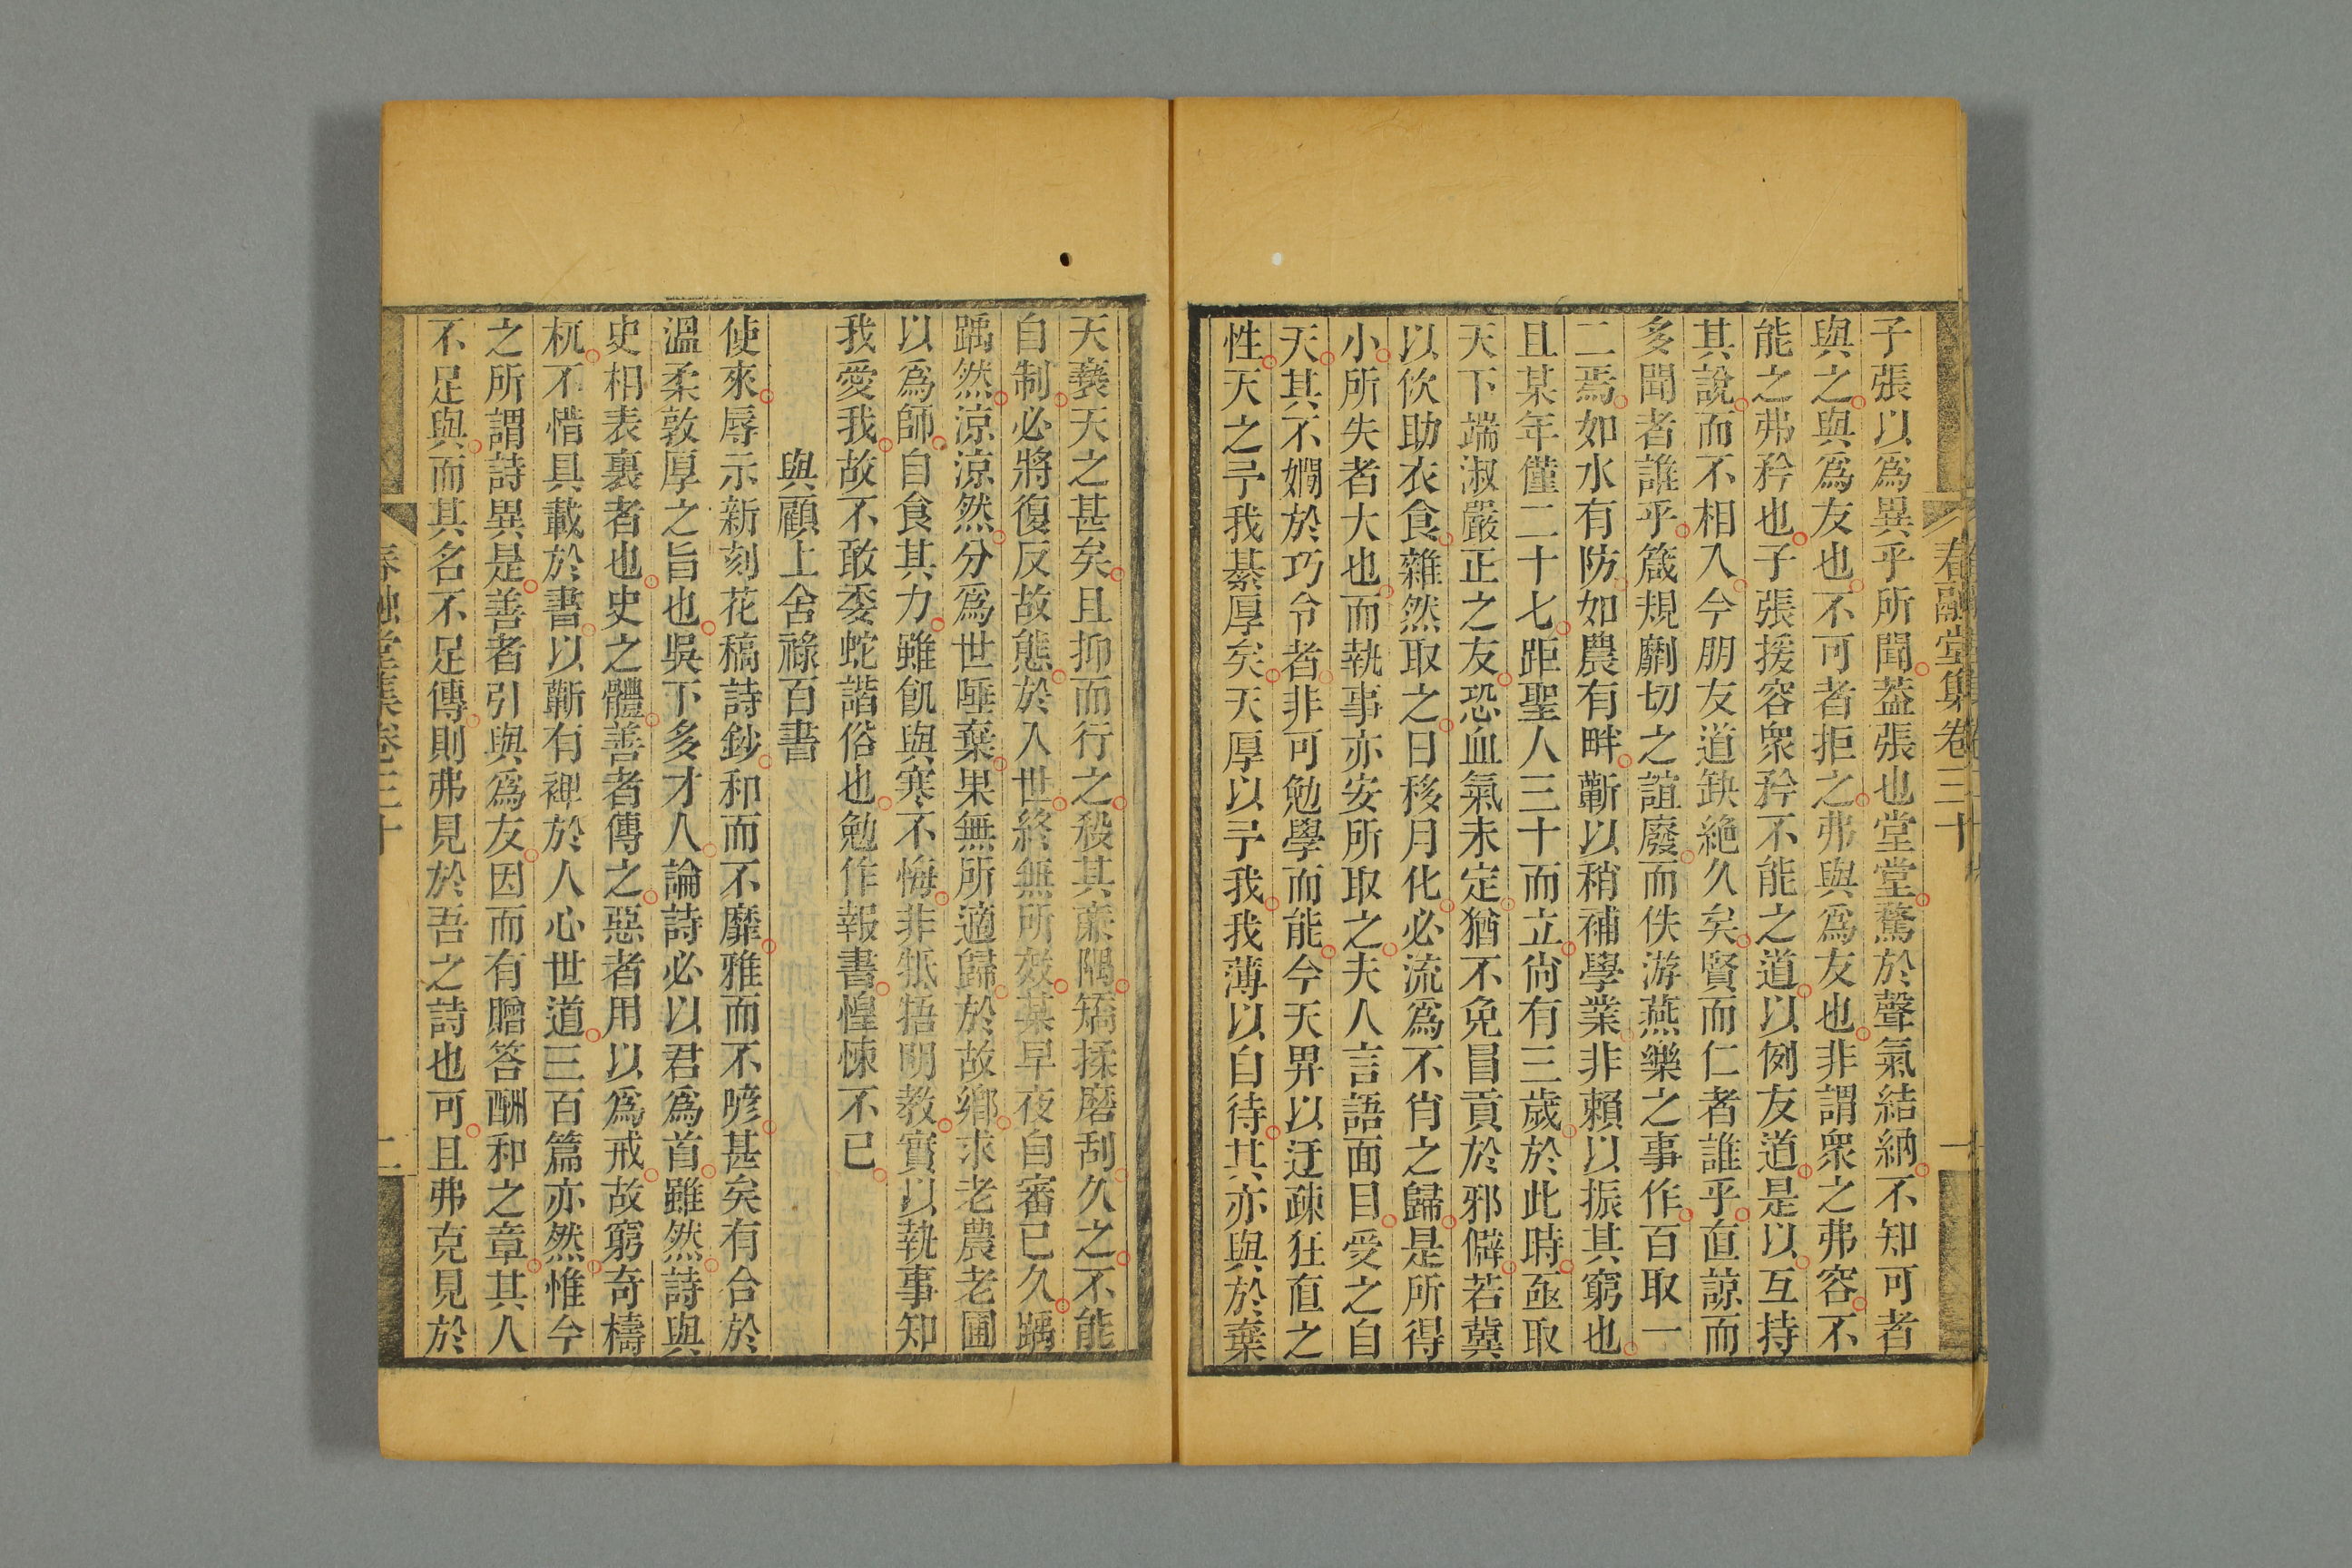 春融堂集卷三十
一
子張以爲異乎所聞葢張也堂堂騖於聲氣結納不知可者
與之與爲友也不可者拒之弗與爲友也非謂衆之弗容不
能之弗矜也子張援容衆矜不能之道以例友道是以互持
其說而不相入今朋友道缺絶久矣賢而仁者誰乎直諒而
多聞者誰乎箴規劘切之誼廢而佚游燕樂之事作百取一
二焉如水有防如農有畔蘄以稍補學業非賴以振其窮也
且某年僅二十七距聖人三十而立尙有三歲於此時亟取
天下端淑嚴正之友恐血氣未定猶不免冒貢於邪僻若冀
以佽助衣食雜然取之日移月化必流爲不肖之歸是所得
小所失者大也而執事亦安所取之夫人言語面目受之自
天其不嫺於巧令者非可勉學而能今天畀以迂疎狂直之
性天之予我綦厚矣天厚以予我我薄以自待其亦與於棄
天褻天之甚矣且抑而行之殺其亷隅矯揉磨刮久之不能
自制必將復反故態於入世終無所效某早夜自審已久踽
踽然涼涼然分爲世唾棄果無所適歸於故鄕求老農老圃
以爲師自食其力雖飢與寒不悔非牴牾明教實以執事知
我愛我故不敢委蛇諧俗也勉作報書惶悚不已
與顧上舍祿百書
使來辱示新刻花稿詩鈔和而不靡雅而不喭甚矣有合於
溫柔敦厚之旨也吳下多才人論詩必以君爲首雖然詩與
史相表裏者也史之體善者傳之惡者用以爲戒故窮奇檮
杌不惜具載於書以蘄有裨於人心世道三百篇亦然惟今
之所謂詩異是善者引與爲友因而有贈答酬和之章其人
不足與而其名不足傳則弗見於吾之詩也可且弗克見於
春融堂集卷三十
二